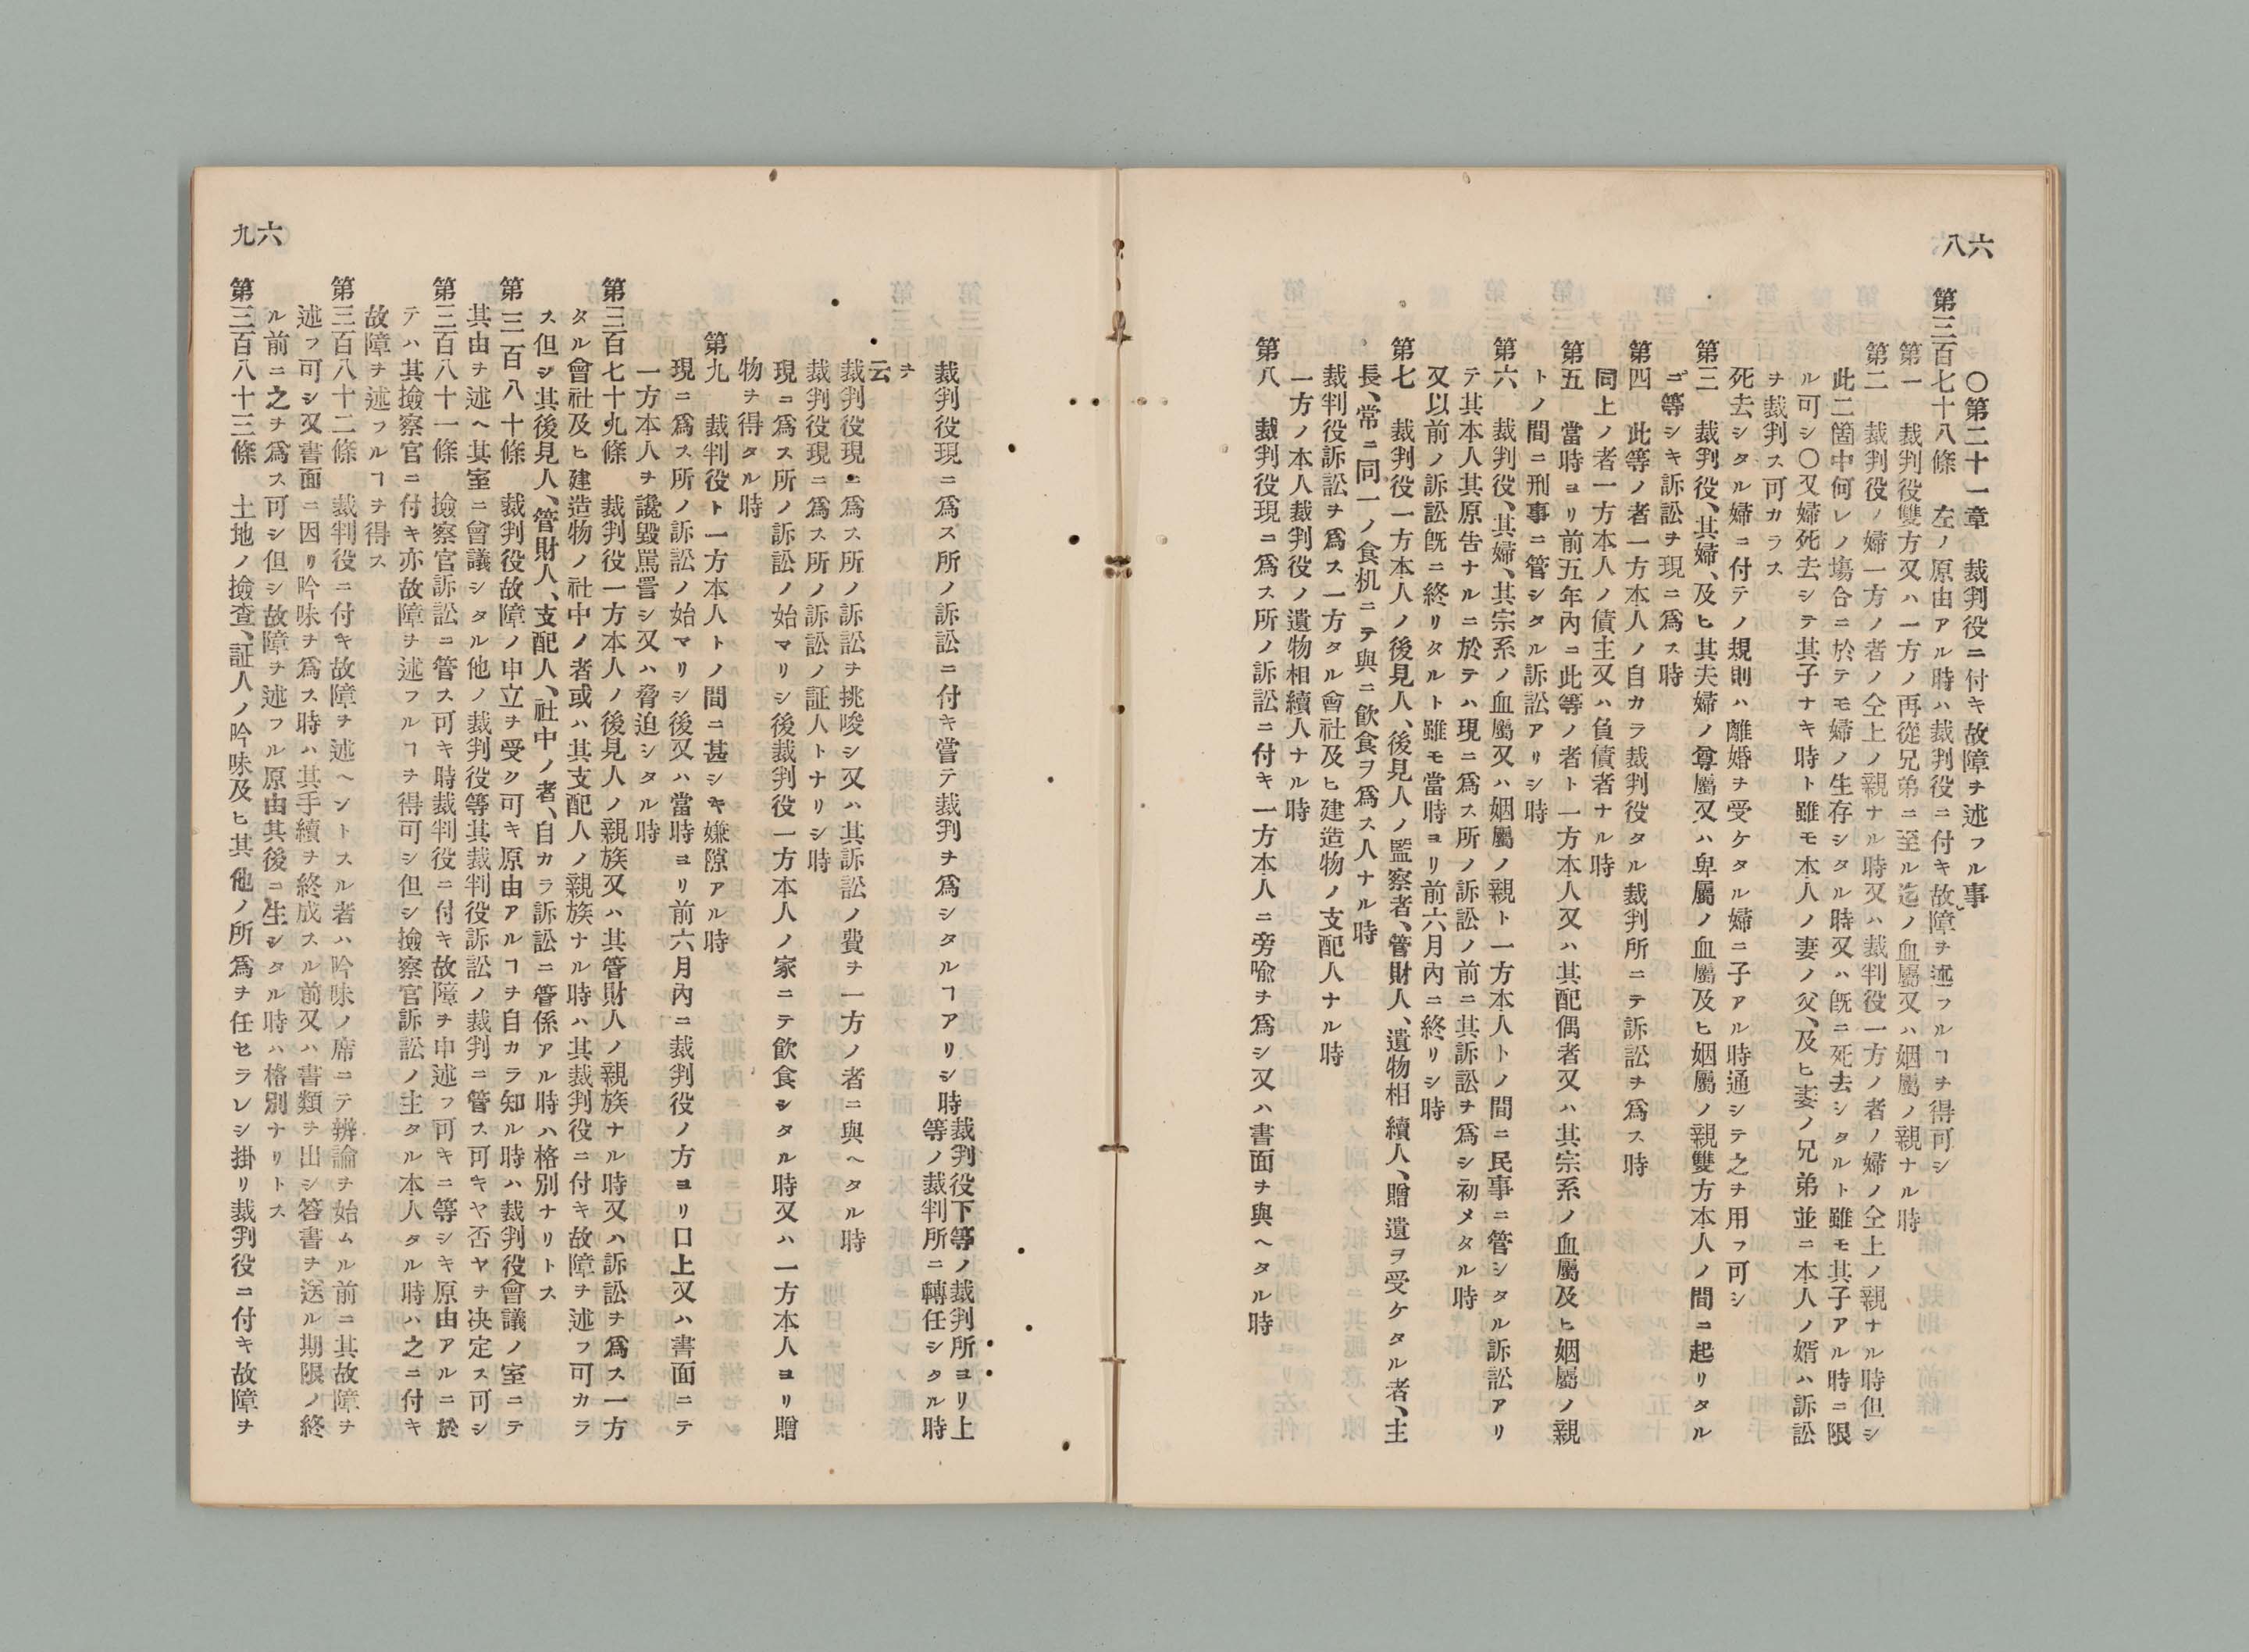 六八
〇第二十一章　裁判役ニ付キ故障ヲ述フル事
第三百七十八條　左ノ原由アル時ハ裁判役ニ付キ故障ヲ述フルヿヲ得可シ
第一　裁判役雙方又ハ一方ノ再從兄弟ニ至ル迄ノ血屬又ハ姻屬ノ親ナル時
第二　裁判役ノ婦一方ノ者ノ仝上ノ親ナル時又ハ裁判役一方ノ者ノ婦ノ仝上ノ親ナル時但シ
此二箇中何レノ塲合ニ於テモ婦ノ生存シタル時又ハ既ニ死去シタルト雖モ其子アル時ニ限
ル可シ〇又婦死去シテ其子ナキ時ト雖モ本人ノ妻ノ父、及ヒ妻ノ兄弟並ニ本人ノ婿ハ訴訟
ヲ裁判ス可カラス
死去シタル婦ニ付テノ規則ハ離婚ヲ受ケタル婦ニ子アル時通シテ之ヲ用フ可シ
第三　裁判役、其婦、及ヒ其夫婦ノ尊屬又ハ卑屬ノ血屬及ヒ姻屬ノ親雙方本人ノ間ニ起リタル
ﾄ等シキ訴訟ヲ現ニ爲ス時
第四　此等ノ者一方本人ノ自カラ裁判役タル裁判所ニテ訴訟ヲ爲ス時
同上ノ者一方本人ノ債主又ハ負債者ナル時
第五　當時ヨリ前五年內ニ此等ノ者ト一方本人又ハ其配偶者又ハ其宗系ノ血屬及ヒ姻屬ノ親
トノ間ニ刑事ニ管シタル訴訟アリシ時
第六　裁判役、其婦、其宗系ノ血屬又ハ姻屬ノ親ト一方本人トノ間ニ民事ニ管シタル訴訟アリ
テ其本人其原告ナルニ於テハ現ニ爲ス所ノ訴訟ノ前ニ其訴訟ヲ爲シ初メタル時
又以前ノ訴訟既ニ終リタルト雖モ當時ヨリ前六月內ニ終リシ時
第七　裁判役一方本人ノ後見人、後見人ノ監察者、管財人、遺物相續人、贈遺ヲ受ケタル者、主
長、常ニ同一ノ食机ニテ與ニ飲食ヲ爲ス人ナル時
裁判役訴訟ヲ爲ス一方タル會社及ヒ建造物ノ支配人ナル時
一方ノ本人裁判役ノ遺物相續人ナル時
第八　裁判役現ニ爲ス所ノ訴訟ニ付キ一方本人ニ旁喩ヲ爲シ又ハ書面ヲ與ヘタル時
六九
裁判役現ニ爲ス所ノ訴訟ニ付キ嘗テ裁判ヲ爲シタルヿアリシ時裁判役下等ノ裁判所ヨリ上
等ノ裁判所ニ轉任シタル時
ヲ
云
裁判役現ニ爲ス所ノ訴訟ヲ挑唆シ又ハ其訴訟ノ費ヲ一方ノ者ニ與ヘタル時
裁判役現ニ爲ス所ノ訴訟ノ証人トナリシ時
現ニ爲ス所ノ訴訟ノ始マリシ後裁判役一方本人ノ家ニテ飲食シタル時又ハ一方本人ヨリ贈
物ヲ得タル時
第九　裁判役ト一方本人トノ間ニ甚シキ嫌隙アル時
現ニ爲ス所ノ訴訟ノ始マリシ後又ハ當時ヨリ前六月內ニ裁判役ノ方ヨリ口上又ハ書面ニテ
一方本人ヲ讒毀罵詈シ又ハ脅迫シタル時
第三百七十九條　裁判役一方本人ノ後見人ノ親族又ハ其管財人ノ親族ナル時又ハ訴訟ヲ爲ス一方
タル會社及ヒ建造物ノ社中ノ者或ハ其支配人ノ親族ナル時ハ其裁判役ニ付キ故障ヲ述フ可カラ
ス但シ其後見人、管財人、支配人、社中ノ者、自カラ訴訟ニ管係アル時ハ格別ナリトス
第三百八十條　裁判役故障ノ申立ヲ受ク可キ原由アルヿヲ自カラ知ル時ハ裁判役會議ノ室ニテ
其由ヲ述ヘ其室ニ會議シタル他ノ裁判役等其裁判役訴訟ノ裁判ニ管ス可キヤ否ヤヲ决定ス可シ
第三百八十一條　撿察官訴訟ニ管ス可キ時裁判役ニ付キ故障ヲ申述フ可キニ等シキ原由アルニ於
テハ其撿察官ニ付キ亦故障ヲ述フルヿヲ得可シ但シ撿察官訴訟ノ主タル本人タル時ハ之ニ付キ
故障ヲ述フルヿヲ得ス
第三百八十二條　裁判役ニ付キ故障ヲ述ヘントスル者ハ吟味ノ席ニテ辨論ヲ始ムル前ニ其故障ヲ
述フ可シ又書面ニ因リ吟味ヲ爲ス時ハ其手續ヲ終成スル前又ハ書類ヲ出シ答書ヲ送ル期限ノ終
ル前ニ之ヲ爲ス可シ但シ故障ヲ述フル原由其後ニ生シタル時ハ格別ナリトス
第三百八十三條　土地ノ撿查、証人ノ吟味及ヒ其他ノ所爲ヲ任セラレシ掛リ裁判役ニ付キ故障ヲ